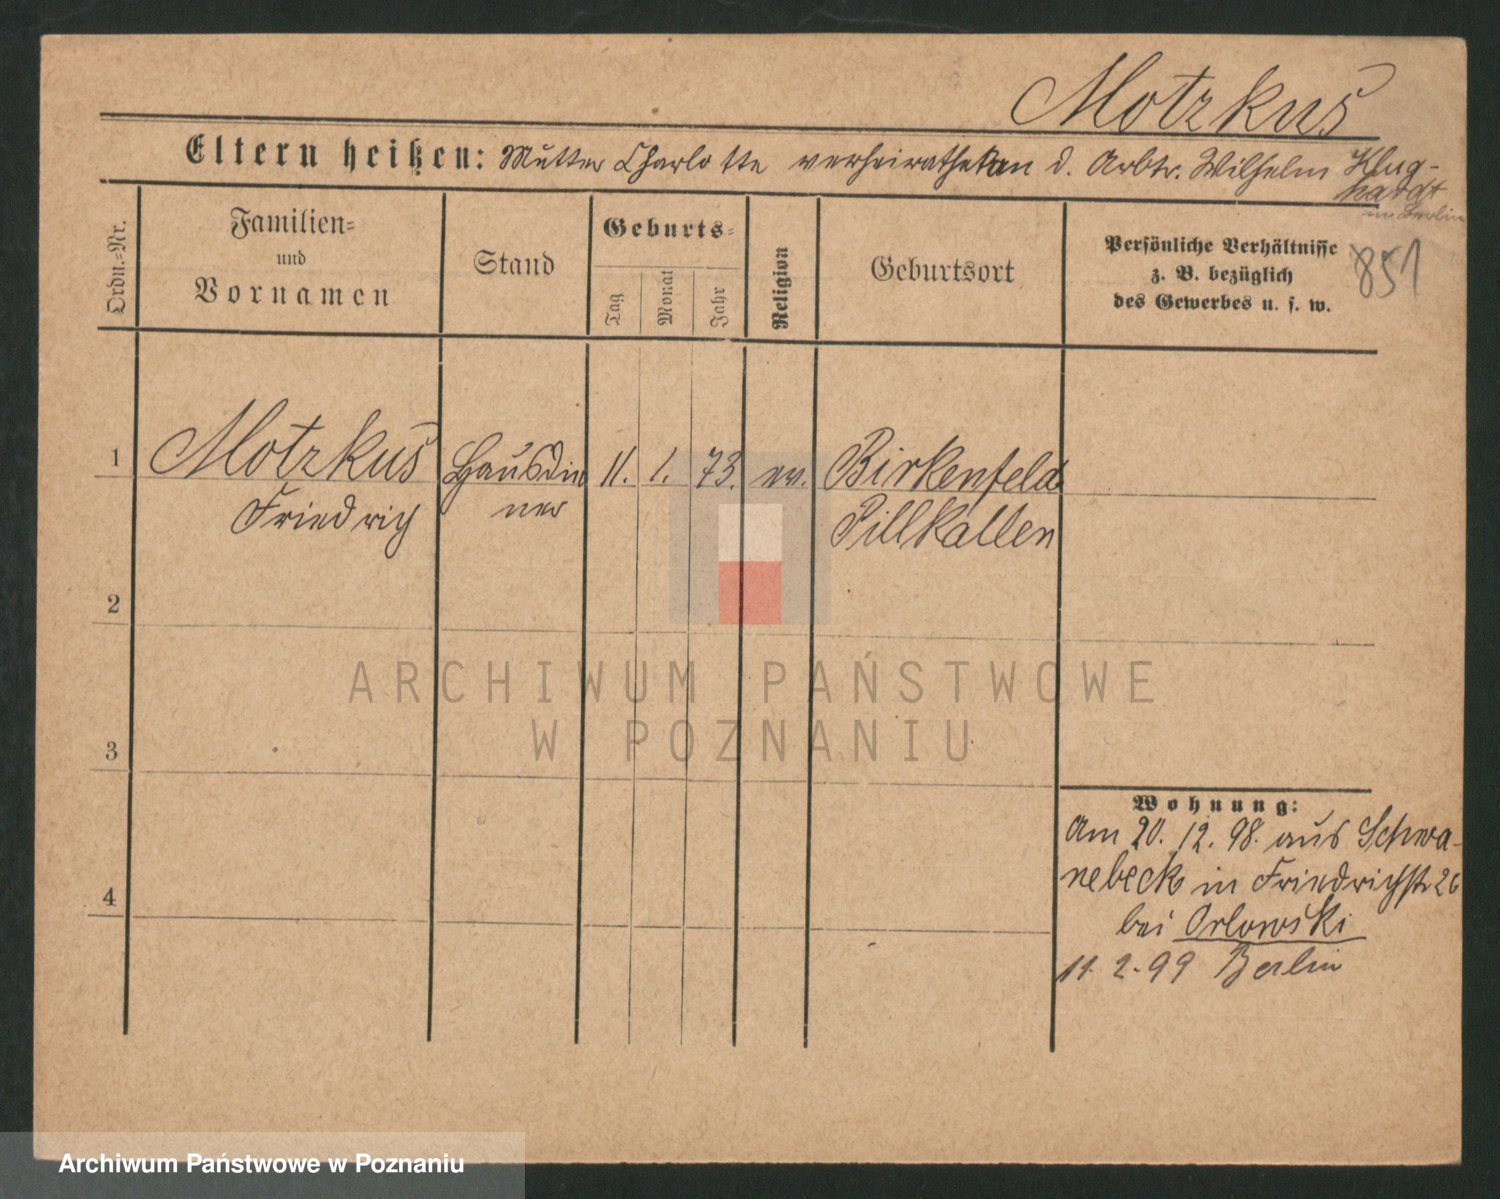 Motzkus
Eltern heißen: Mutter Charlotte verheirathet an d. Arbtr. Wilhelm Klug-
hardt
in Berlin
Ordn.-Nr.
Familien-
und
Vornamen
Stand
Geburts-
Tag
Monat
Jahr
Religion
Geburtsort
Persönliche Verhältnisse
z. B. bezüglich
des Gewerbes u. s. w.
851
1 Motzkus Hausdie 11. 1. 73. ev. Birkenfeld
Friedrich ner Pillkallen
2
3
4
Wohnung:
Am 20. 12. 98. aus Schwa-
nebeck in Friedrichstr 26
bei Orlowski
11. 2. 99 Berlin
ARCHIWUM PAŃSTWOWE
W POZNANIU
Archiwum Państwowe w Poznaniu